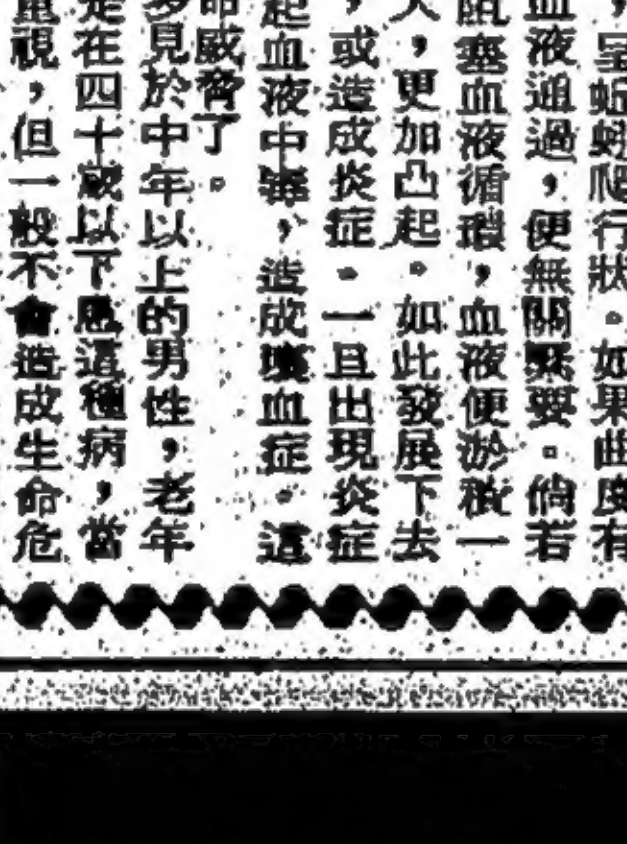 ，呈蚯蚓爬行狀。如果曲度有
血液通過，便無關緊要。倘若
阻塞血液循環，血液便淤積一
大，更加凸起。如此發展下去
，或造成炎症。一旦出現炎症
起血液中毒，造成壞血症。這
命威脅了。
多見於中年以上的男性，老年
是在四十歲以下患這種病，當
重視，但一般不會造成生命危